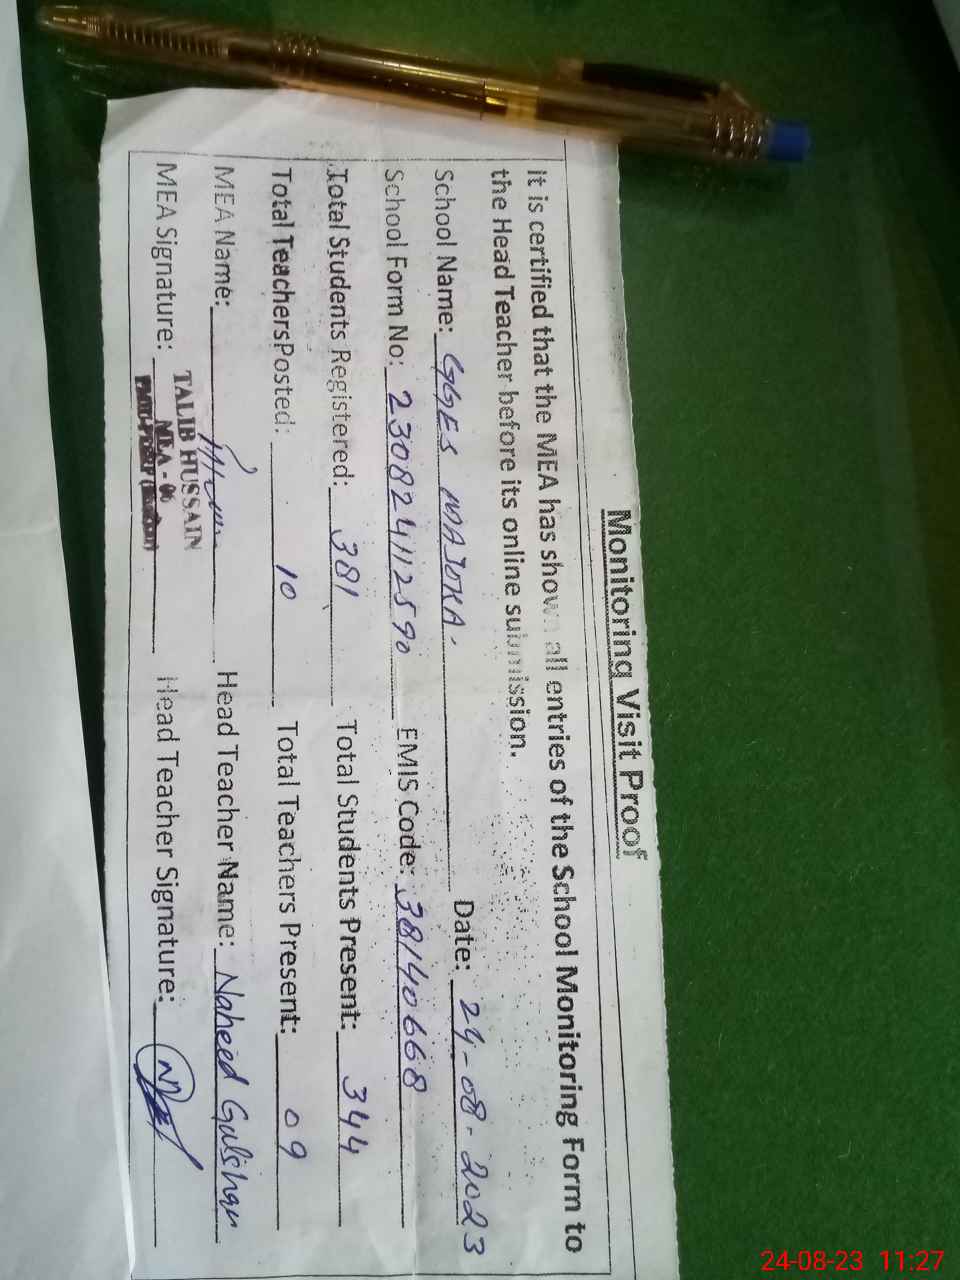 Monitoring Visit Proof
It is certified that the MEA has shown all entries of the School Monitoring Form to
the Head Teacher before its online submission.
School Name: GGES MAJOKA Date: 24-08-2023
School Form No: 230824112590 EMIS Code: 38140668
Total Students Registered: 381 Total Students Present: 344
Total TeachersPosted: 10 Total Teachers Present: 09
MEA Name: Head Teacher Name: Naheed Gulshan
TALIB HUSSAIN
MEA Signature: MEA - 06 Head Teacher Signature:
24-08-23 11:27